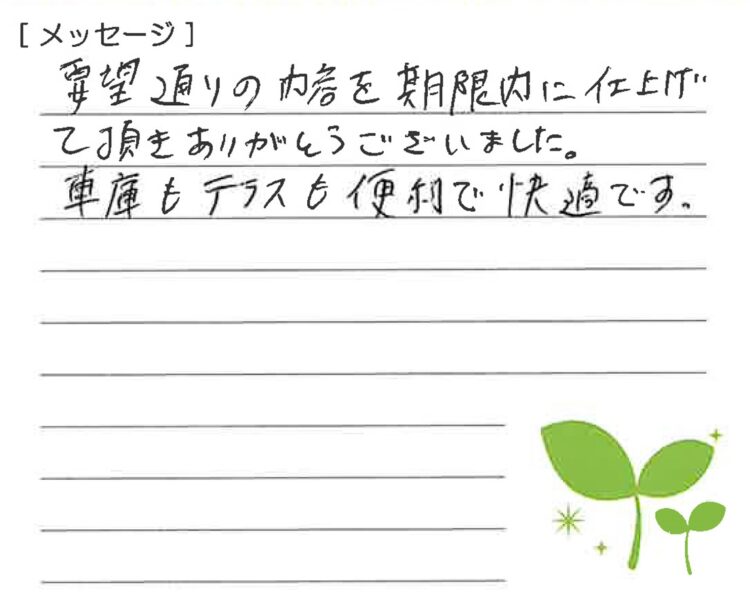 [ メッセージ ]
要望通りの内容を期限内に仕上げ
て頂きありがとうございました。
車庫もテラスも便利で快適です。